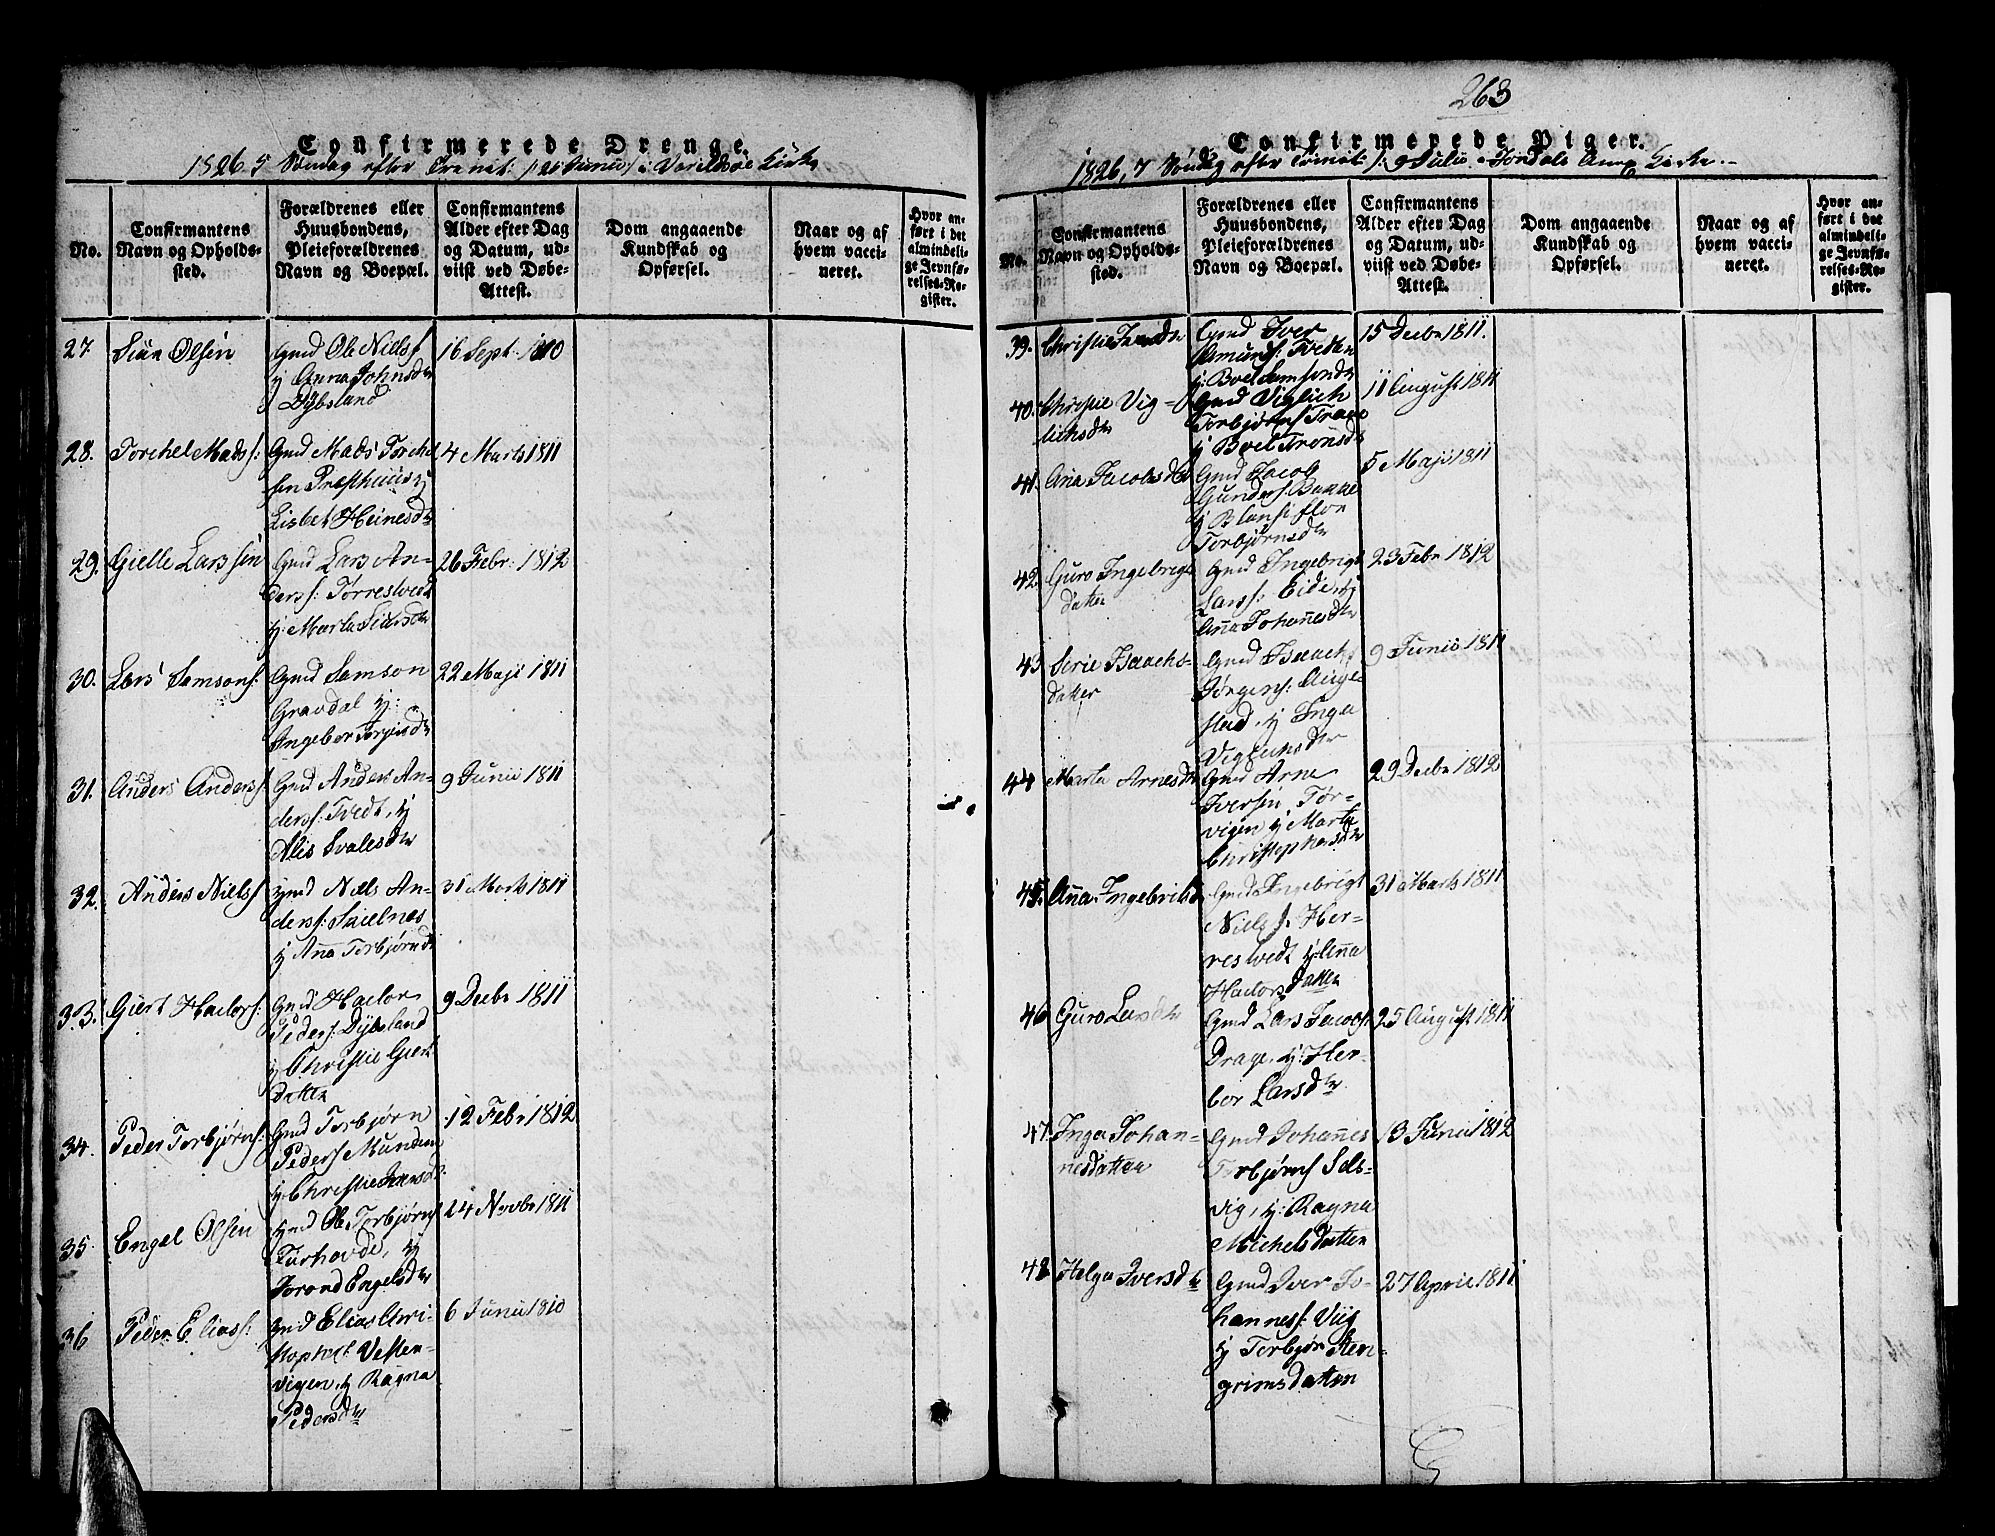 Confirmerede Drenge.
1826 5 Søndag efter Trinit: Junii Kirke
No.
Confirmantens
Navn og Opholds-
sted.
Forældrenes eller
Huusbondens,
Pleieforældrenes
Navn og Boepæl.
Confirmantens
Alder efter Dag
og Datum, ud-
viist ved Døbe-
Attest.
Dom angaaende
Kundskab og
Opførsel.
Naar og af
hvem vacci-
neret.
Hvor an-
ført i det
almindeli-
ge Jevnfø-
relses-Re-
gister.
27.
Olsen
Gmd Ole Nielss
Anna Johnsdtr
Dybsland
16 Sept: 1810
28.
Torchel Madss:
Gmd Mads Torchel
sen Præsthuus
Lisbet Heinesdtr
4 Marts 1811
29.
Gielle Larssen
Gmd Lars An-
derss: Torrestvedt
Marta Siursdtr
26 Febr: 1812
30.
Lars Samsons:
Gmd Samson
Gravdal
Ingebor Torgiusdtr
22 Maji 1811
31.
Anders Anderss:
Gmd Anders An-
derss: Tvedt,
Alis Svalesdtr
9 Junii 1811
32.
Anders Nielss
gmd Niels An-
derss:
Anna Torbjørnsdtr
31 Marts 1811
33.
Giert Hadors:
Gmd Hador
Peders: Dybsland
Christie Giert
datter
9 Decbr 1811
34.
Peder Torbjørns:
Gmd Torbjørn
Peders Mundem
Christie
12 Febr 1812
35.
Engel Olsen
gmd Ole Torbjørns
Turhovde,
Torond Engelsdtr
24 Novbr 1811
36
Peder Eliass:
gmd Elias Chri-
stophers Vetten-
vigen, Ragna
Pedersdtr
6 Junii 1810
263
Confirmerede Piger.
1826, 7 Søndag efter Trinit: 9 Julii Jondals Kirke
No.
Confirmantens
Navn og Opholds-
sted.
Forældrenes eller
Huusbondens,
Pleieforældrenes
Navn og Boepæl.
Confirmantens
Alder efter Dag
og Datum, ud-
viist ved Døbe-
Attest.
Dom angaaende
Kundskab og
Opførsel.
Naar og af
hvem vacci-
neret.
Hvor an-
ført i det
almindeli-
ge Jevnfø-
relses-Re-
gister.
39.
Christie
Gmd Iver
Amunds: Tveden
Boel Samsondtr
15 Decbr 1811.
40.
Christie Vig-
lichsdtr
Gmd Viglich
Torbjørns
Boel Tronsdtr
11 August 1811
41.
Ana Jacobsdtr
Gmd Jacob
Gunders: Bakke
Blansiflor
Torbjørnsdtr
5 Maji 1811
42.
Guro Ingebrigt
datter
Gmd Ingebrigt
Larss: Eide
Anna Johannesdtr
23 Febr 1812
43
Serie Isaachs-
datter
Gmd Isaach
Jørgens:
Inga
Viglichsdtr
9 Junii 1811
44
Marta Arnesdtr
Gmd Arne
Iversen, Tør-
vigen Marta
Christophersdtr
29 Decbr 1812
45.
Anna Ingebrikts
Gmd Ingebrigt
Nielss: Her-
restvedt Anna
Hadors Datter
31 Marts 1811
46
Guro Larsdtr
Gmd Lars Jacobs:
Drage, Her-
bor Larsdtr
25 August 1811
47.
Inga Johan-
nesdatter
Gmd Johannes
Torbjørns Sels-
vig, Ragna
Michelsdatter
13 Junii 1812
48
Helga Iversdtr
Gmd Iver Jo-
hanness: Viig
Torbjør Sten-
grimsdatter
27 April 1811